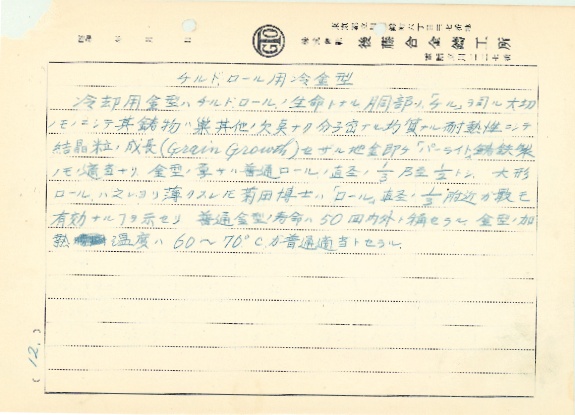 昭和 年 月 日
GTO
株式會社 後藤合金鑄工所
チルドロール用冷金型
冷却用金型ハチルドロールノ生命トナル胴部ノ「チル」ヲ司ル大切
ノモノニシテ其鋳物ハ巣其他ノ欠点ナク分子密ナル均質ナル耐熱性ニシテ
結晶粒ノ成長(Grain Growth)セザル地金即チ「パーライト」鋳鉄製
ノモノ適当ナリ 金型ノ厚サハ普通ロールノ直径ノ 1/3 乃至 1/2 トシ 大形
ロールハ之レヨリ薄クスレ 菊田博士ハ「ロール」直径ノ 1/3 附近ガ最モ
有効ナル フヲ示セリ 普通金型ノ寿命ハ50回内外ト稱セラル 金型ノ加
熱 温度ハ 60〜70°Cガ普通適当トセラル.
(12.)